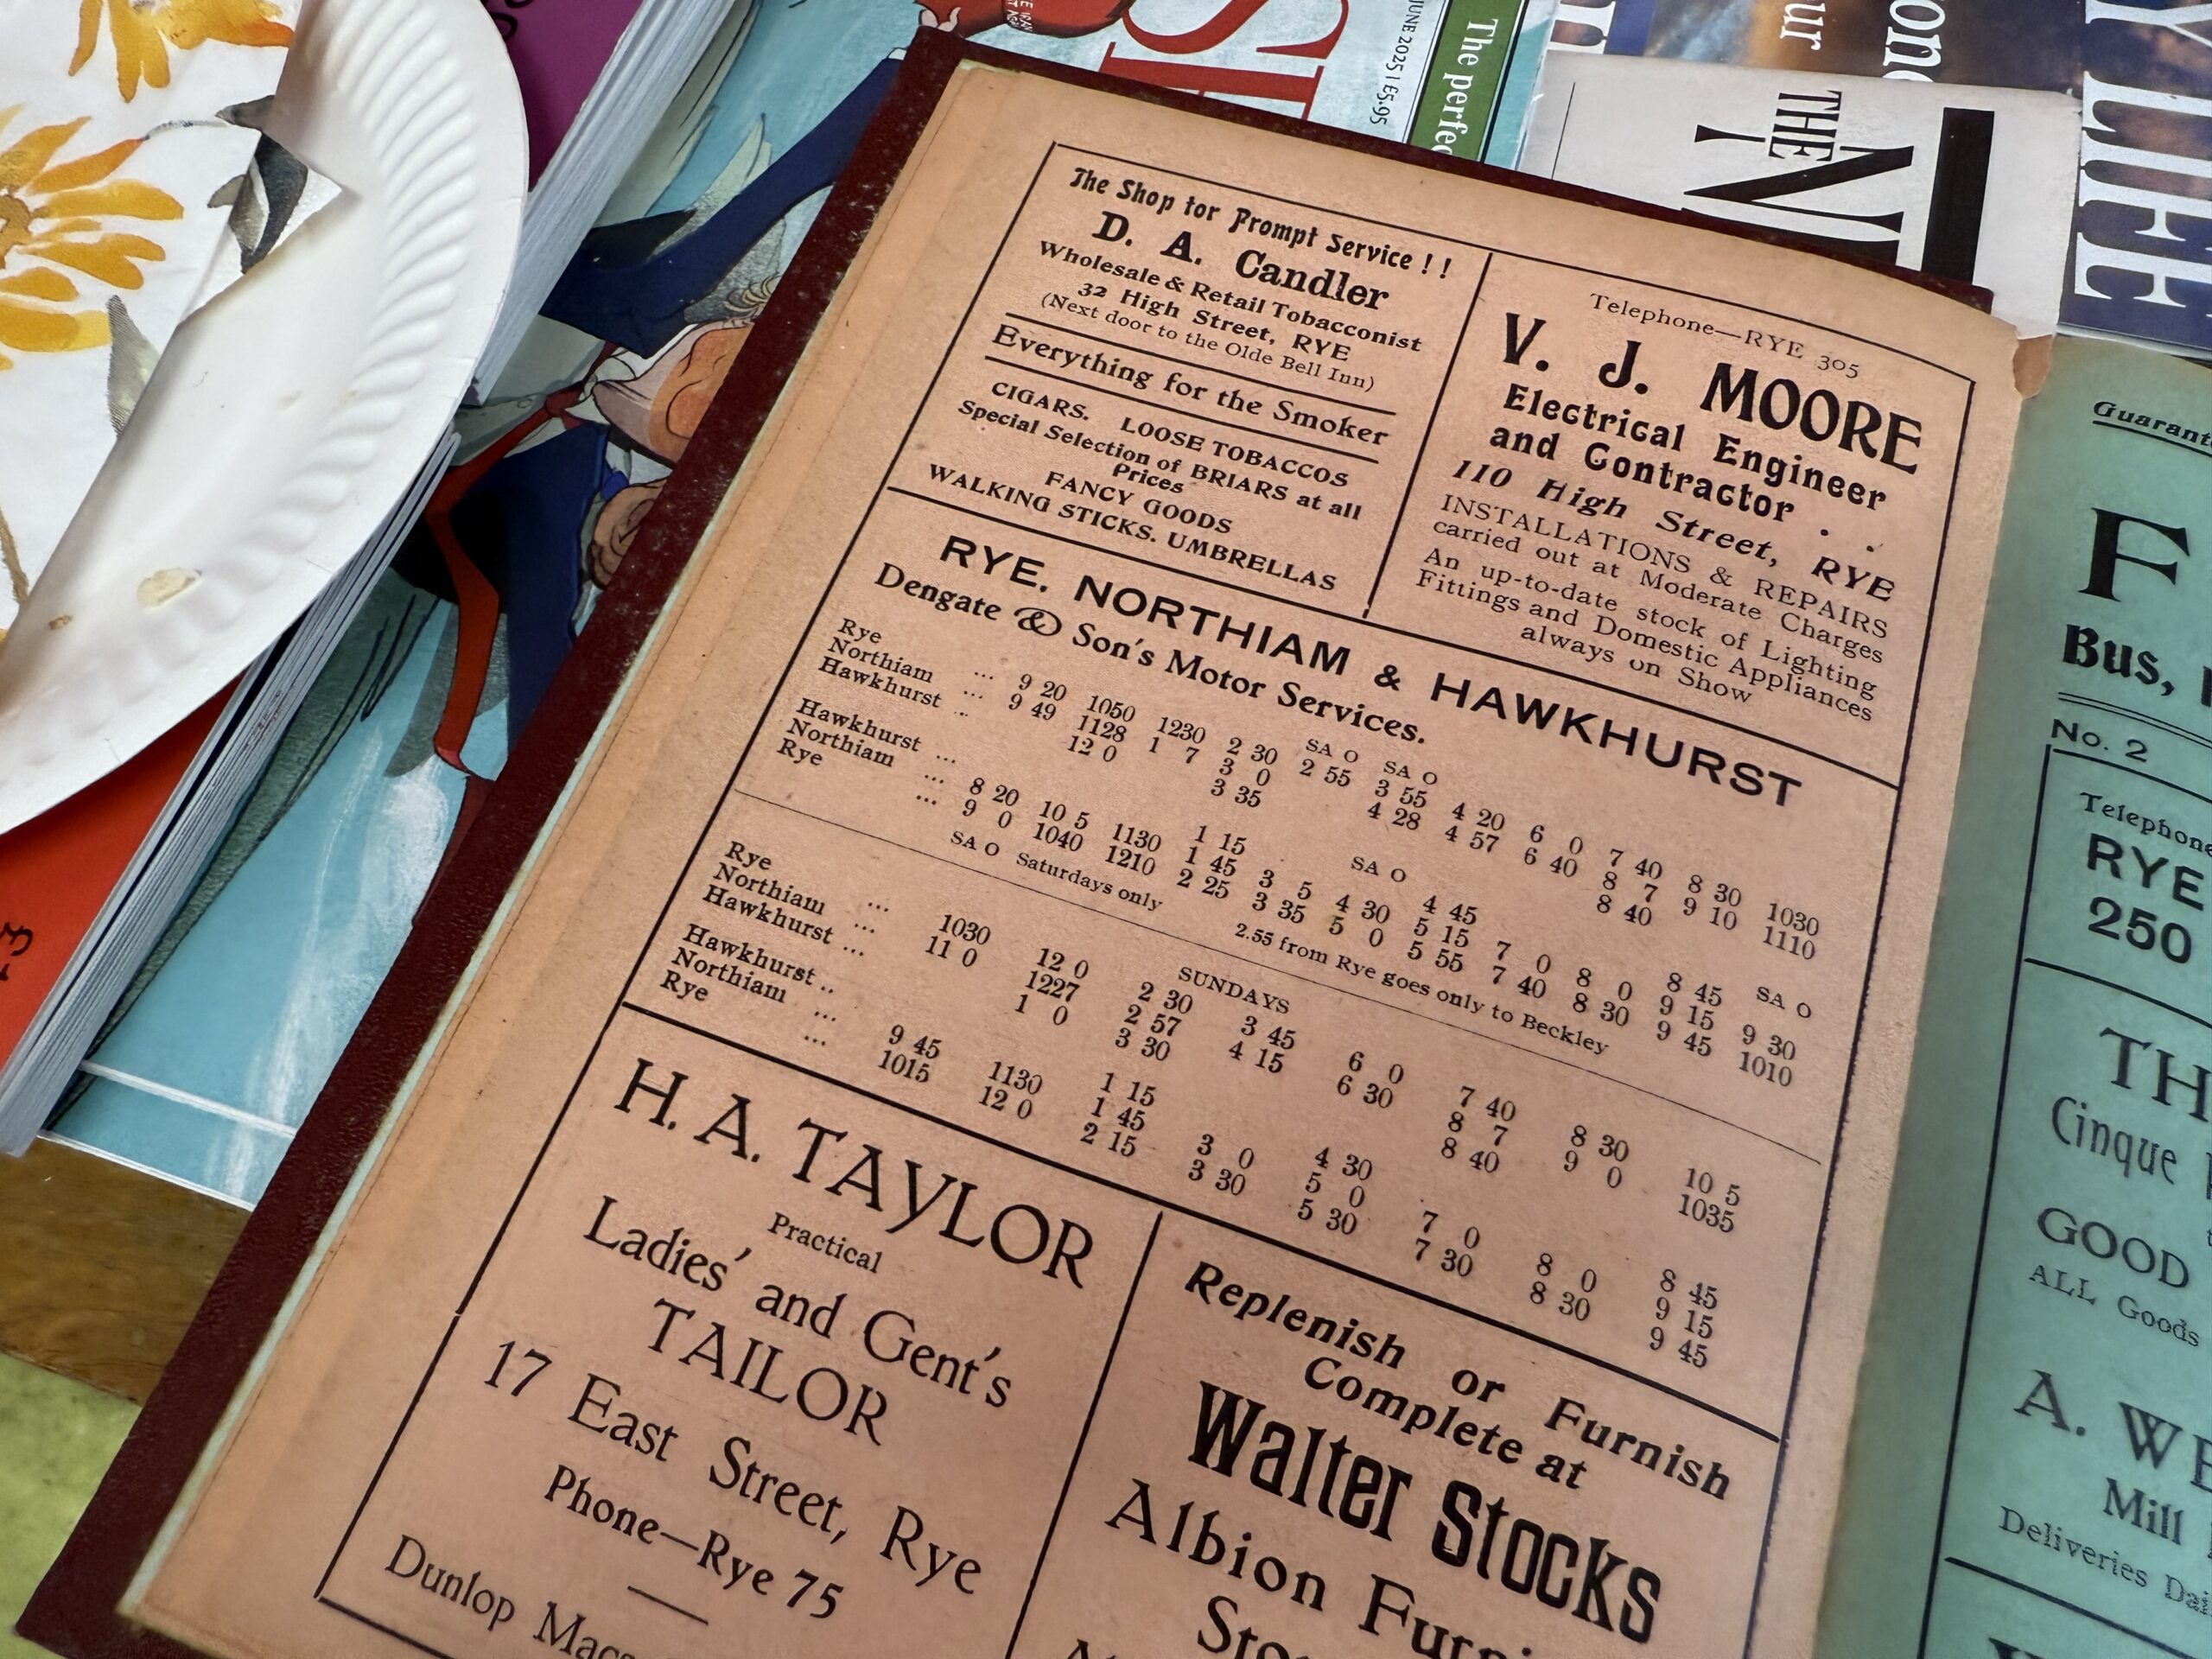 The Shop for Prompt Service ! !
D. A. Candler
Wholesale & Retail Tobacconist
32 High Street, RYE
(Next door to the Olde Bell Inn)
Everything for the Smoker
CIGARS. LOOSE TOBACCOS
Special Selection of BRIARS at all
Prices
FANCY GOODS
WALKING STICKS. UMBRELLAS
Telephone—RYE 305
V. J. MOORE
Electrical Engineer
and Contractor . .
110 High Street, RYE
INSTALLATIONS & REPAIRS
carried out at Moderate Charges
An up-to-date stock of Lighting
Fittings and Domestic Appliances
always on Show
RYE. NORTHIAM & HAWKHURST
Dengate & Son's Motor Services.
SA O SA O
Rye ... 9 20 1050 1230 2 30 2 55 3 55 4 20 6 0 7 40 8 30 1030
Northiam ... 9 49 1128 1 7 3 0 4 28 4 57 6 40 8 7 9 10 1110
Hawkhurst .. 12 0 3 35 8 40
SA O SA O
Hawkhurst ... 1 15 4 45 8 45
Northiam ... 8 20 10 5 1130 1 45 3 5 4 30 5 15 7 0 8 0 9 15 9 30
Rye ... 9 0 1040 1210 2 25 3 35 5 0 5 55 7 40 8 30 9 45 1010
SA O Saturdays only 2.55 from Rye goes only to Beckley
SUNDAYS
Rye ... 1030 12 0 2 30 3 45 6 0 7 40 8 30 10 5
Northiam ... 11 0 1227 2 57 4 15 6 30 8 7 9 0 1035
Hawkhurst ... 1 0 3 30 8 40
Hawkhurst .. 1 15 4 30 8 45
Northiam ... 9 45 1130 1 45 3 0 5 0 7 0 8 0 9 15
Rye ... 1015 12 0 2 15 3 30 5 30 7 30 8 30 9 45
H. A. TAYLOR
Practical
Ladies' and Gent's
TAILOR
17 East Street, Rye
Phone—Rye 75
Dunlop Macs
Replenish or Furnish
Complete at
Walter Stocks
Albion Furni
Sto
Guarant
F
Bus,
No. 2
Telephone
RYE
250
TH
Cinque
GOOD
ALL Goods
A. WE
Mill
Deliveries Dai
JUNE 2025 | £5.95
The perfec
THE
N
Y LIFE